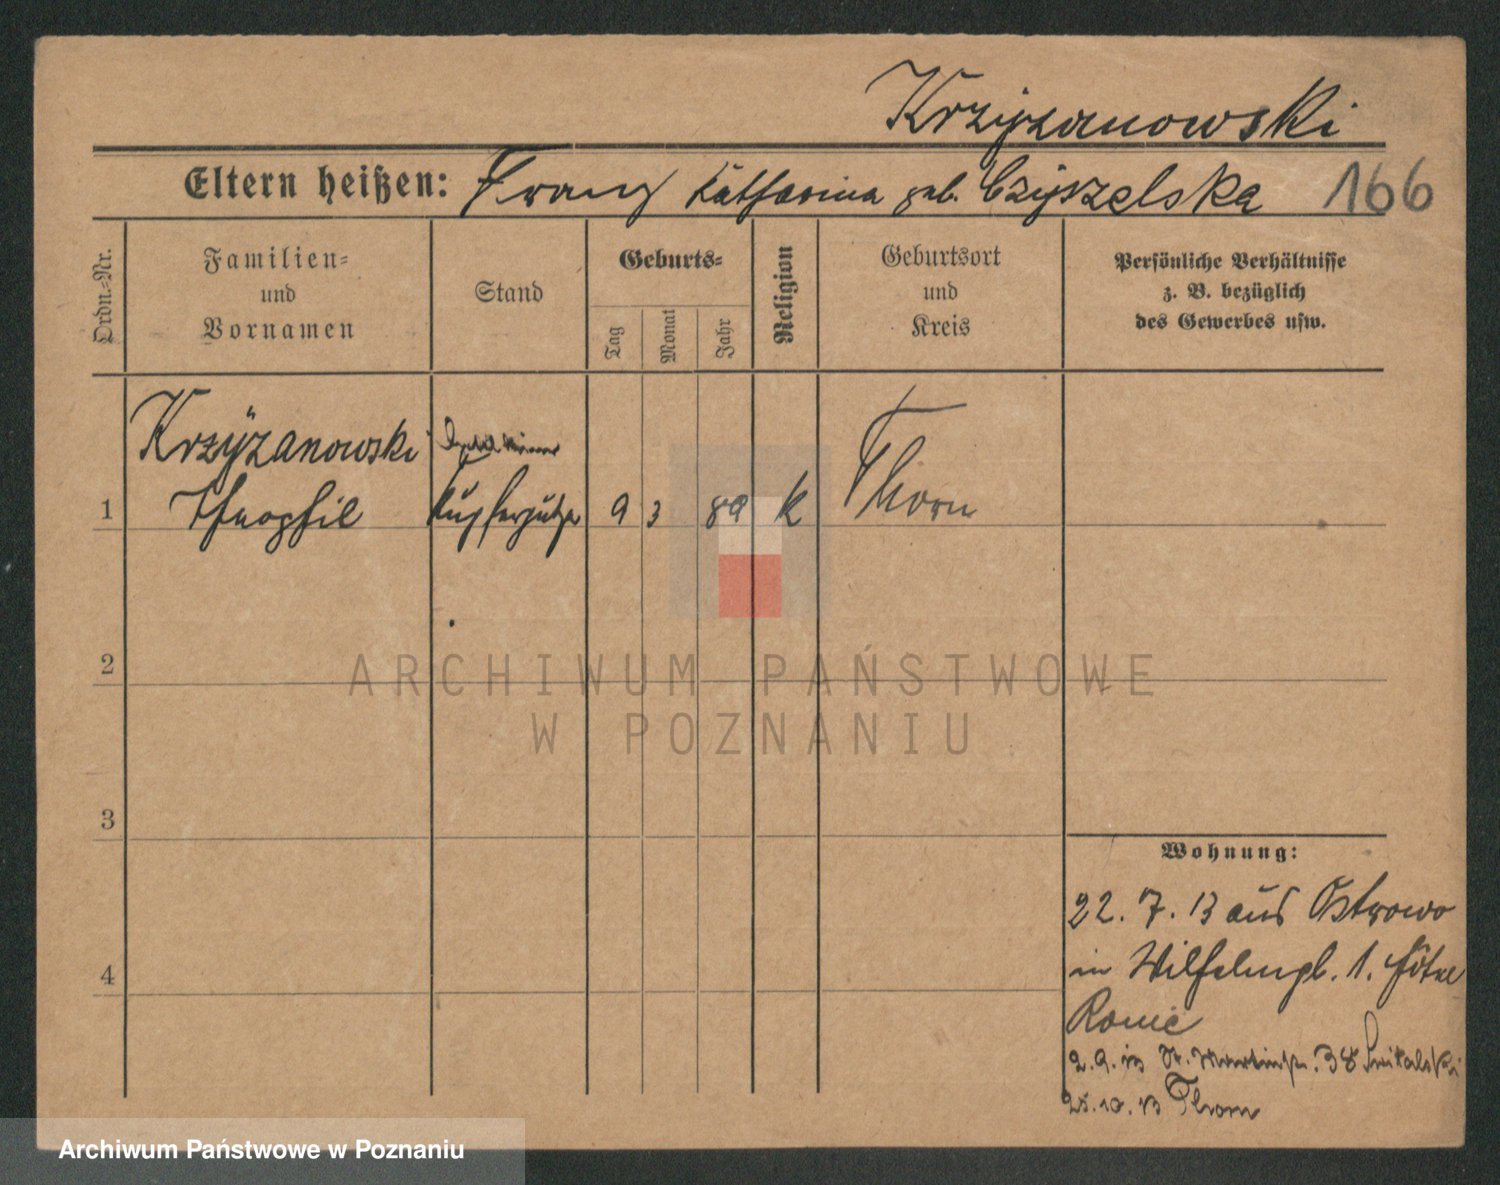 Krzyzanowski
Eltern heißen: Franz Katharina geb. Czyszelska 166
Ordn.-Nr.
Familien-
und
Vornamen
Stand
Geburts-
Tag
Monat
Jahr
Religion
Geburtsort
und
Kreis
Persönliche Verhältnisse
z. B. bezüglich
des Gewerbes usw.
Krzyzanowski
1 Theophil 9 3 89 k Thorn
2
ARCHIWUM PAŃSTWOWE
W POZNANIU
3
Wohnung:
22. 7. 13 aus Ostrowo
4
in Wilhelmpl. 1. Hôtel
Rome
2. 9. 13 St. Martinstr. 38
25. 10. 13 Thorn
Archiwum Państwowe w Poznaniu